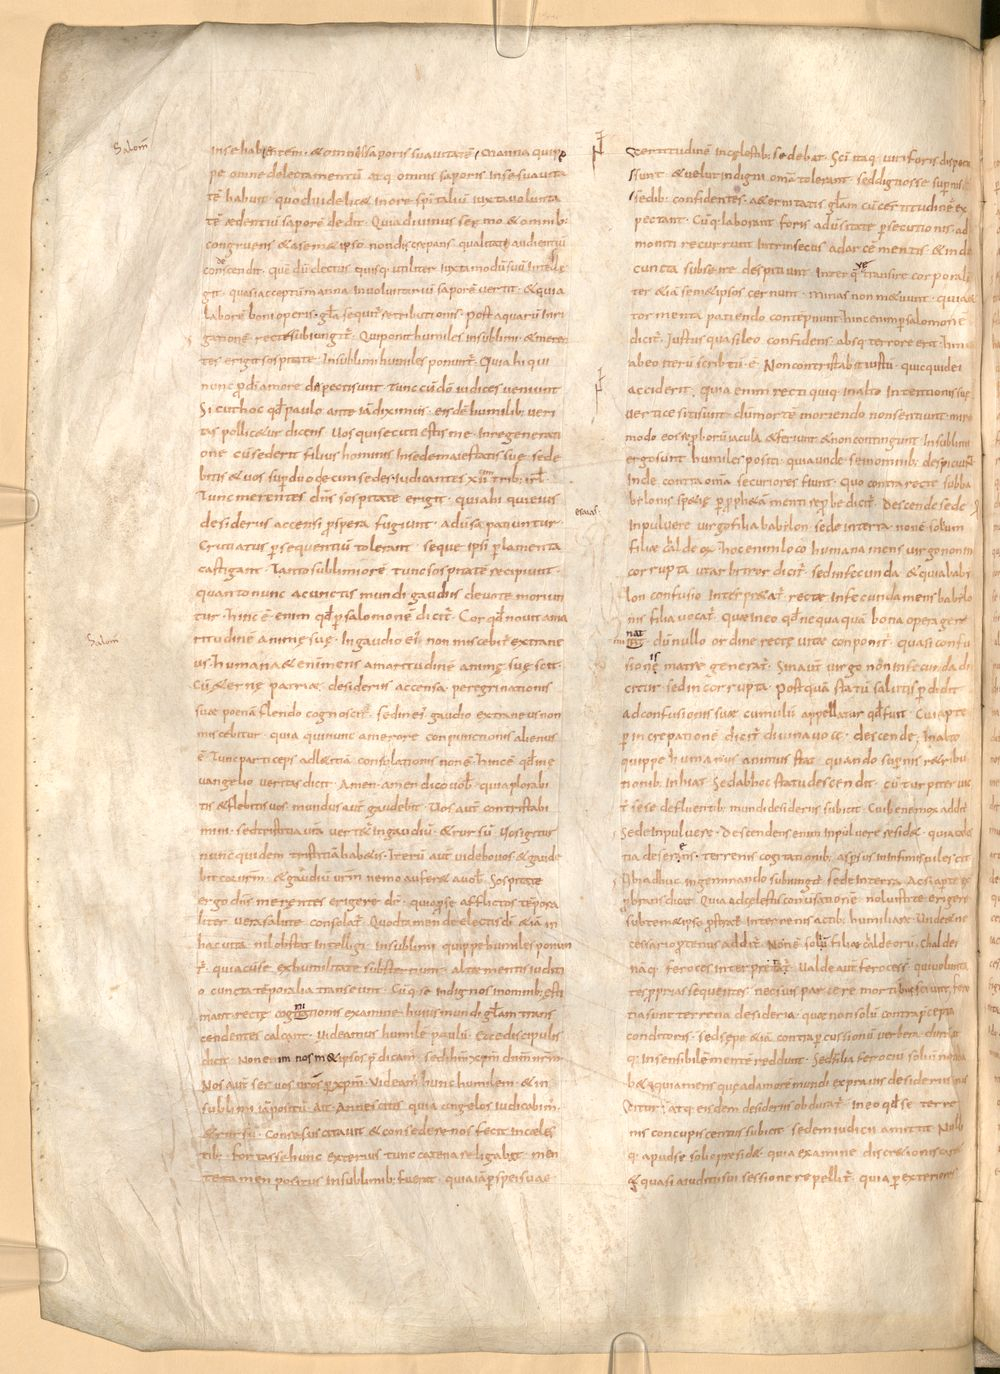 Salom̄
in se habentem · & omnis saporis suauitatē · manna quip
pe omne delectamentū atq; omnis saporis in se suauita
tē habuit · quod uidelic& in ore spiritaliū iuxta uolunta
tē edentiū saporē dedit · Quia diuinus sermo & omnib;
congruens & a sem&ipso non discrepans qualitati audientiū
condescendit · Quē dū electus quisq; utiliter iuxta modū suū intelle
git · quasi acceptum manna in uoluntariū saporē uertit · & quia
laborē boni operis · gl̄a sequit̄ retributionis · Post aquarū inri
gationē recte subiungit̄ · Qui ponit humiles in sublimi · & meren
tes erigit sospitate · In sublimi humiles ponunt̄ · Quia hi qui
nunc p̱ di amore despecti sunt · tunc cū dō iudices ueniunt
Sicut hoc qd̄ paulo ante iā diximus · eisdē humilib; ueri
tas pollicetur dicens · Uos qui secuti estis me · In regenerati
one cū sederit filius hominis In sede maiestatis suę · sede
bitis & uos sup̱ duodecim sedes · iudicantes xii trib; isrl̄ ·
Tunc merentes dn̄s sospitate erigit · quia hi qui eius
desiderio accensi prospera fugiunt · aduersa patiuntur ·
Cruciatus p̱sequentiū tolerant · seque ipsi p̱ lamenta
castigant · Tanto sublimiorē tunc sospitatē recipiunt ·
quanto nunc a cunctis mundi gaudiis deuote moriun
tur · hinc ē enim qd̄ p̱ salomonē dicit̄ · Cor qd̄ nouit ama
Salom̄
ritudinē animę suę · In gaudio ei' non miscebit̄ extrane
us · humana & enim mens amaritudinē animę suę scit ·
Cū &ernę patriae desideriis accensa · peregrinationis
suae poenā flendo cognoscit · sed in ei' gaudio extraneus non
miscebitur · quia qui nunc a merore conpunctionis alienus
ē · Tunc particeps ad lætitiā consolationis non ē · hinc ē qd̄ in e
uangelio ueritas dicit · Amen amen dico uob̄ · quia plorabi
tis & flebitis uos mundus aut̄ gaudebit · Uos aut̄ contristabi
mini · sed tristitia ur̄a uert&̄ in gaudiū · & rursū · Uos igitur
nunc quidem tristitiā hab&is · Iterū aut̄ uidebo uos & gaude
bit cor ur̄m · & gaudiū ur̄m nemo aufer& a uob̄ · Sospitate
ergo dn̄s merentes erigere dr̄ · quia p̱ se afflictos tēpora
liter uera salute consolat̄ · Quod tamen de electis di & iā in
hac uita nil obstat intelligi · In sublimi quippe humiles ponun
t̄ · quia cū se ex humilitate substernunt · altæ mentis iuditi
o cuncta tēporalia transeunt · Cūq; se indignos in omnib; esti
mant · recte cogitationis examine huius mundi gl̄am trans
cendentes calcant · Uideamus humilē paulū · Ecce discipulis
dicit · Non enim nosm&ipsos p̱dicam̄ · sed ihm̄ xp̄m dn̄m nr̄m ·
Nos aut̄ seruos uros p̱ xp̄m · Uideam̄ hunc humilem · & in
sublimi iā positū · Ait · An nescitis quia angelos iudicabim̄ ·
& rursū · Conresuscitauit & consedere nos fecit in cęles
tib; · Fortasse hunc exterius tunc catena religabat · men
te tamen positus in sublimib; fuerat · quia iā p̱ spei suae
certitudinē in cęlestib; sedebat · Sc̄i itaq; uiri foris despecti
sunt · & uelut indigni om̄a tolerant · sed dignos se supernis
sedib; confidentes · aeternitatis gl̄am cū certitudinē ex
pectant · Cūq; laborant foris aduersitate p̱secutionis · ad
moniti recurrunt intrinsecus ad arcē mentis · & inde
cuncta subter se despitiunt · Inter quę transire corporali
ter & iā sem&ipsos cernunt · minas non m&uunt · quia &
tormenta patiendo contēpnunt · hinc enim p̱ salomonē
dicit̄ · Iustus quasi leo confidens absq; terrore erit · hinc
ab eo iterū scribtū · ē · Non contristabit iustū · quicquid ei
acciderit · Quia enim recti quiq; in alto intentionis suę
uertice siti sunt · dū mortē moriendo non sentiunt · miro
modo eos reproborū iacula & feriunt & non contingunt · In sublimi
ergo sunt humiles positi · quia unde se in omnib; despiciunt
Inde contra om̄a securiores fiunt · Quo contra recte subba
bilonis speciē p̱ p̱ph&ā menti reprobę dicit̄ · Descende sede
esaias
in puluere uirgo filia babilon · sede in terra · non ē solium
filiae caldeorū · hoc enim loco humana mens uirgo non in
corrupta ut arbitror dicit̄ · sed infecunda · & quia babi
lon confusio interpr&at̄ · recte infecunda mens babilo
nis filia uocat̄ · quae in eo qd̄ nequaquā bona opera gerit
nat
dum nullo ordine recte uitae conponit̄ · quasi confu
sione matre generat̄ · Sin aut̄ uirgo non infecunda di
citur · sed incorrupta · Postquā statū salutis p̱didit
ad confusionis suae cumulū appellatur qd̄ fuit · Cui apte
p̱ increpationē dicit̄ diuina uoce · descende · In alto
quippe humanus animus stat · quando supernis retribu
tionib; inhiat · Sed ab hoc statu descendit · cū turpiter uic
t̄ sese defluentib; mundi desideriis subicit · Cui bene mox addit̄
Sede in puluere · Descendens enim in puluere resid& · quia cęles
tia deserens · terrenis cogitationib; aspersus in infimis uilescit
Ubi adhuc ingeminando subiungit̄ sede in terra · Ac si apte ex
p̱brans dicat · Quia ad cęlestis conuersatione noluisti te erigere
sub tem&ipso p̱strat̄ in terrenis actib; humiliare · Unde & ne
cessario p̱tenus addit̄ · Non ē soliū filiae caldeorū · Chaldei
naq; feroces interpretat̄ · Ualde aut̄ feroces st̄ · qui uolunta
tes p̱prias sequentes · nec suis parcere moribus sciunt · fero
tia sunt terrena desideria · quae non solū contra p̱cepta
conditoris · sed sepe & iā contra p̱cussionū uerbera · durū at
q; insensibilē mentē reddunt · Sed filia ferociū soliū non ha
b& · quia mens quę ad amorē mundi ex prauis desideriis nas
citur · atq; eisdem desideriis obdurat̄ · In eo qd̄ se terre
nis concupiscentiis subicit · sedem iudicii amittit · Nulli
q; apud se solio presid& · quia examine discretionis care
& quasi a iuditii sui sessione repellit̄ · quia p̱ exteriores